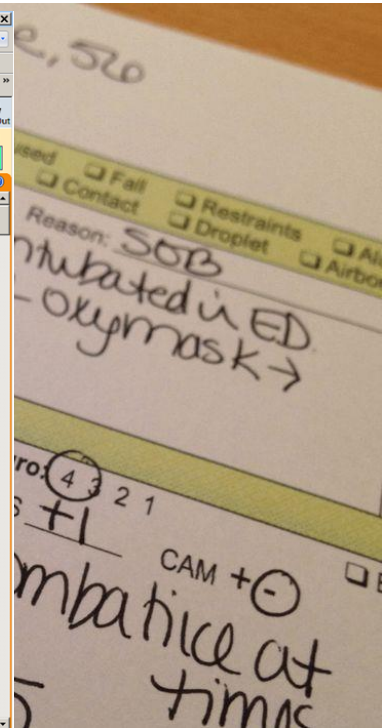 e, 56
used ☐ Fall ☐ Restraints
☐ Contact ☐ Droplet ☐ Airbor
Reason: SOB
ntubated in ED.
oxymask →
ro: 4 3 2 1
S +1 CAM + -
mbatice at
times